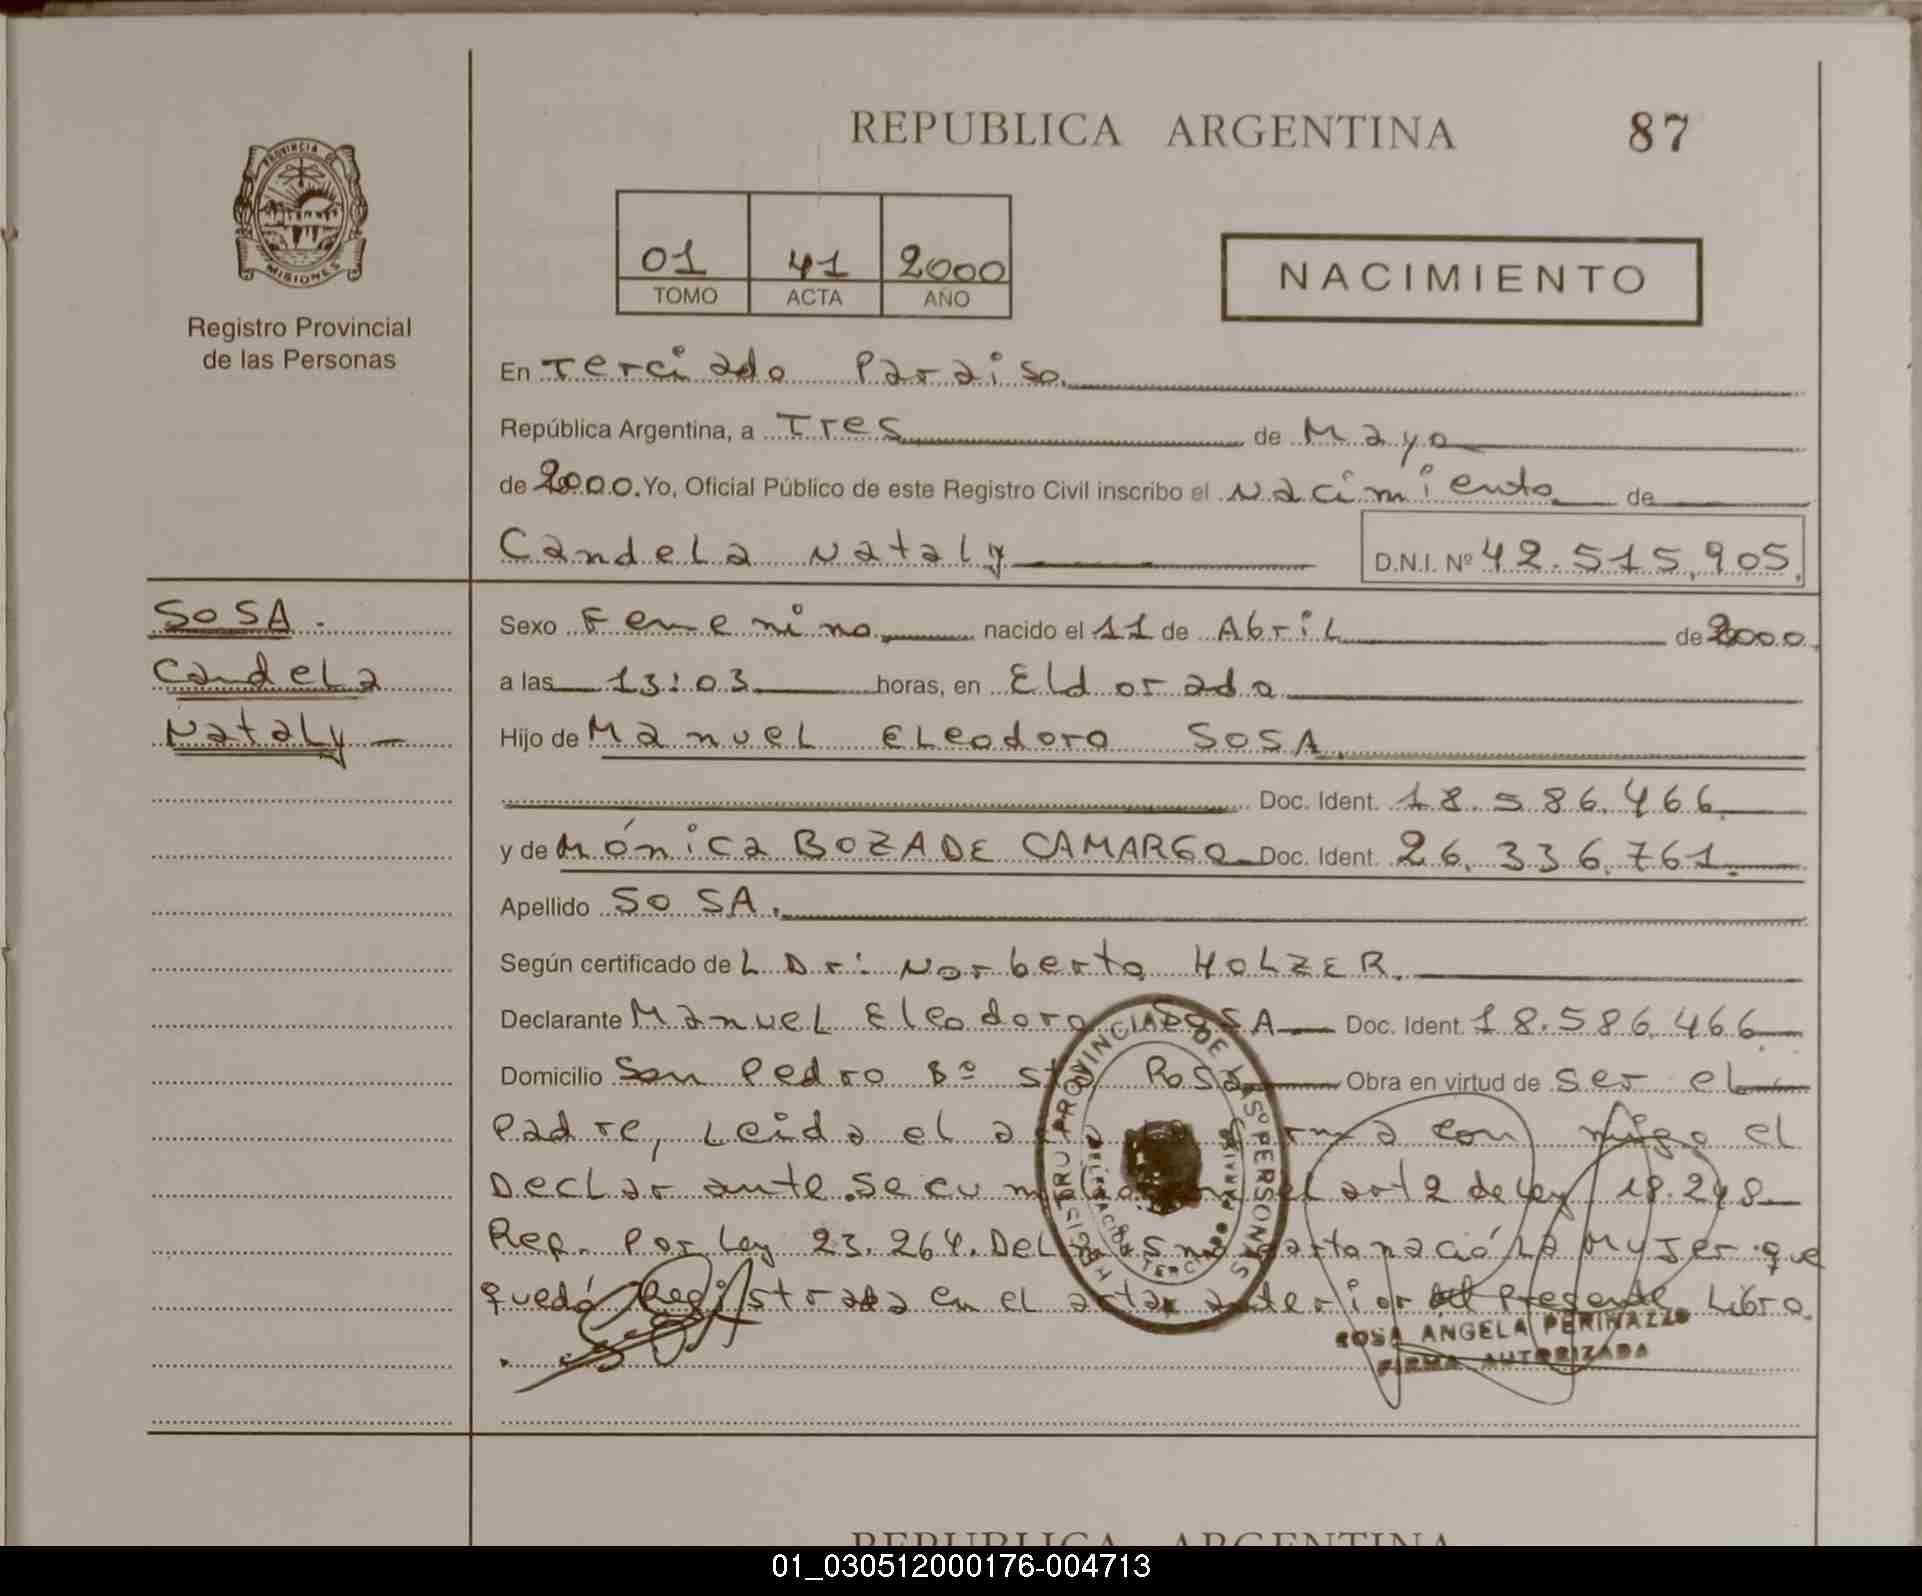 REPUBLICA ARGENTINA 87
PROVINCIA DE
MISIONES
Registro Provincial
de las Personas
01 41 2000
TOMO ACTA AÑO
NACIMIENTO
En Terciado Paraiso.
República Argentina, a Tres de Mayo
de 2000. Yo, Oficial Público de este Registro Civil inscribo el Nacimiento de
Candela Nataly D.N.I. Nº 42.515.905.
SOSA.
Candela
Nataly
Sexo Femenino nacido el 11 de Abril de 2000.
a las 13:03 horas, en Eldorado
Hijo de Manuel Eleodoro SOSA.
Doc. Ident. 18.586.466
y de Mónica BOZA DE CAMARGO Doc. Ident. 26.336.761
Apellido SOSA.
Según certificado de L Dr: Norberto HOLZER.
Declarante Manuel Eleodoro SOSA Doc. Ident. 18.586.466
Domicilio San Pedro Bº Sta Rosa Obra en virtud de ser el
Padre, Leida el firma con migo el
Declarante. Se el art 2 de ley 18.248
Rep. Por Ley 23.264. Del mismo Parto nació la Mujer que
quedó Registrada en el acta anterior del Presente Libro.
REGISTRO PROVINCIAL DE LAS PERSONAS
DELEGACION TERCIADO PARAISO
ROSA ANGELA PERINAZZO
FIRMA AUTORIZADA
REPUBLICA ARGENTINA
01_030512000176-004713